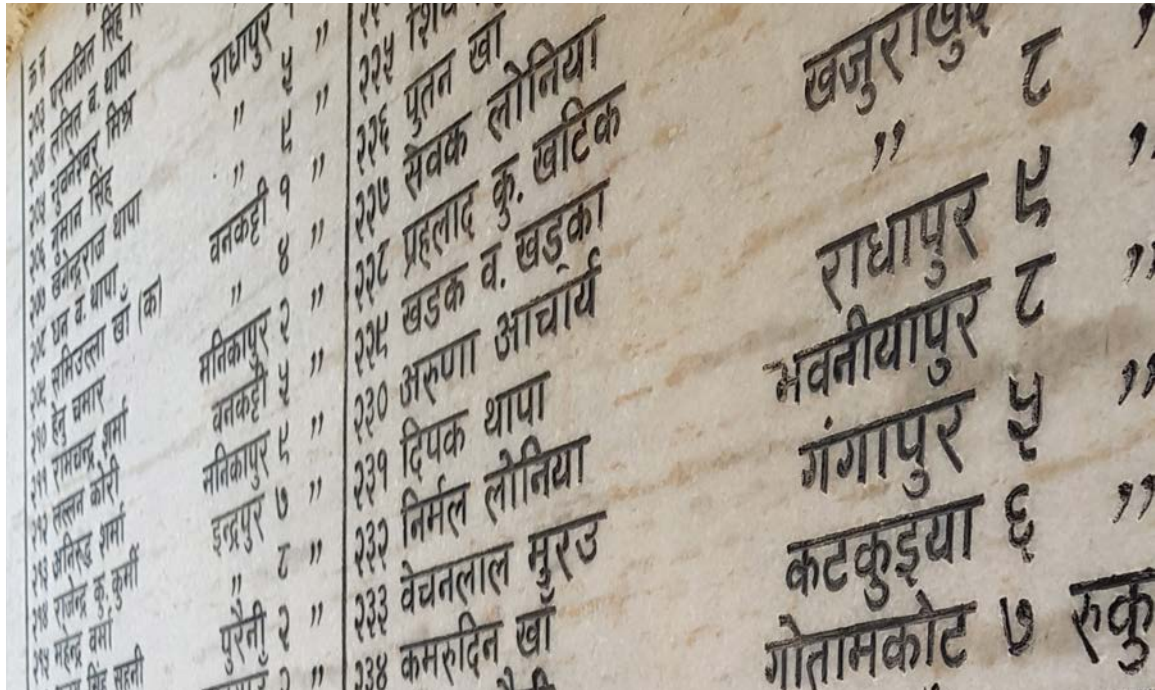 क्र.सं
२०३ परमजित सिंह
२०४ ललित व. थापा
२०५ भुवनेश्वर मिश्र
२०६ गुमान सिंह
२०७ खगेन्द्रराज थापा
२०८ धन व. थापा
२०९ समिउल्ला खाँ (क)
२१० हेनु चमार
२११ रामचन्द्र शर्मा
२१२ लल्लन कोरी
२१३ अनिरुद्ध शर्मा
२१४ राजेन्द्र कु. कुर्मी
२१५ महेन्द्र वर्मा
सिंह सहनी
राधापुर १ ”
” ५ ”
” ९ ”
वनकट्टी १ ”
” ४ ”
मनिकापुर २ ”
वनकट्टी ५ ”
मनिकापुर ९ ”
इन्द्रपुर ७ ”
” ८ ”
पुरैनी २ ”
२ ”
२२५ पुतन खाँ
२२६ सेवक लोनिया
२२७ प्रहलाद कु. खटिक
२२८ खडक व. खड्का
२२९ अरुणा आचार्य
२३० दिपक थापा
२३१ निर्मल लोनिया
२३२ वेचनलाल मुरउ
२३३ कमरुदिन खाँ
२३४
खजुराखुर्द ८ ”
” ९ ”
राधापुर ८ ”
भवनीयापुर ५ ”
गंगापुर ६ ”
कटकुइया ७ रुकु
गोतामकोट